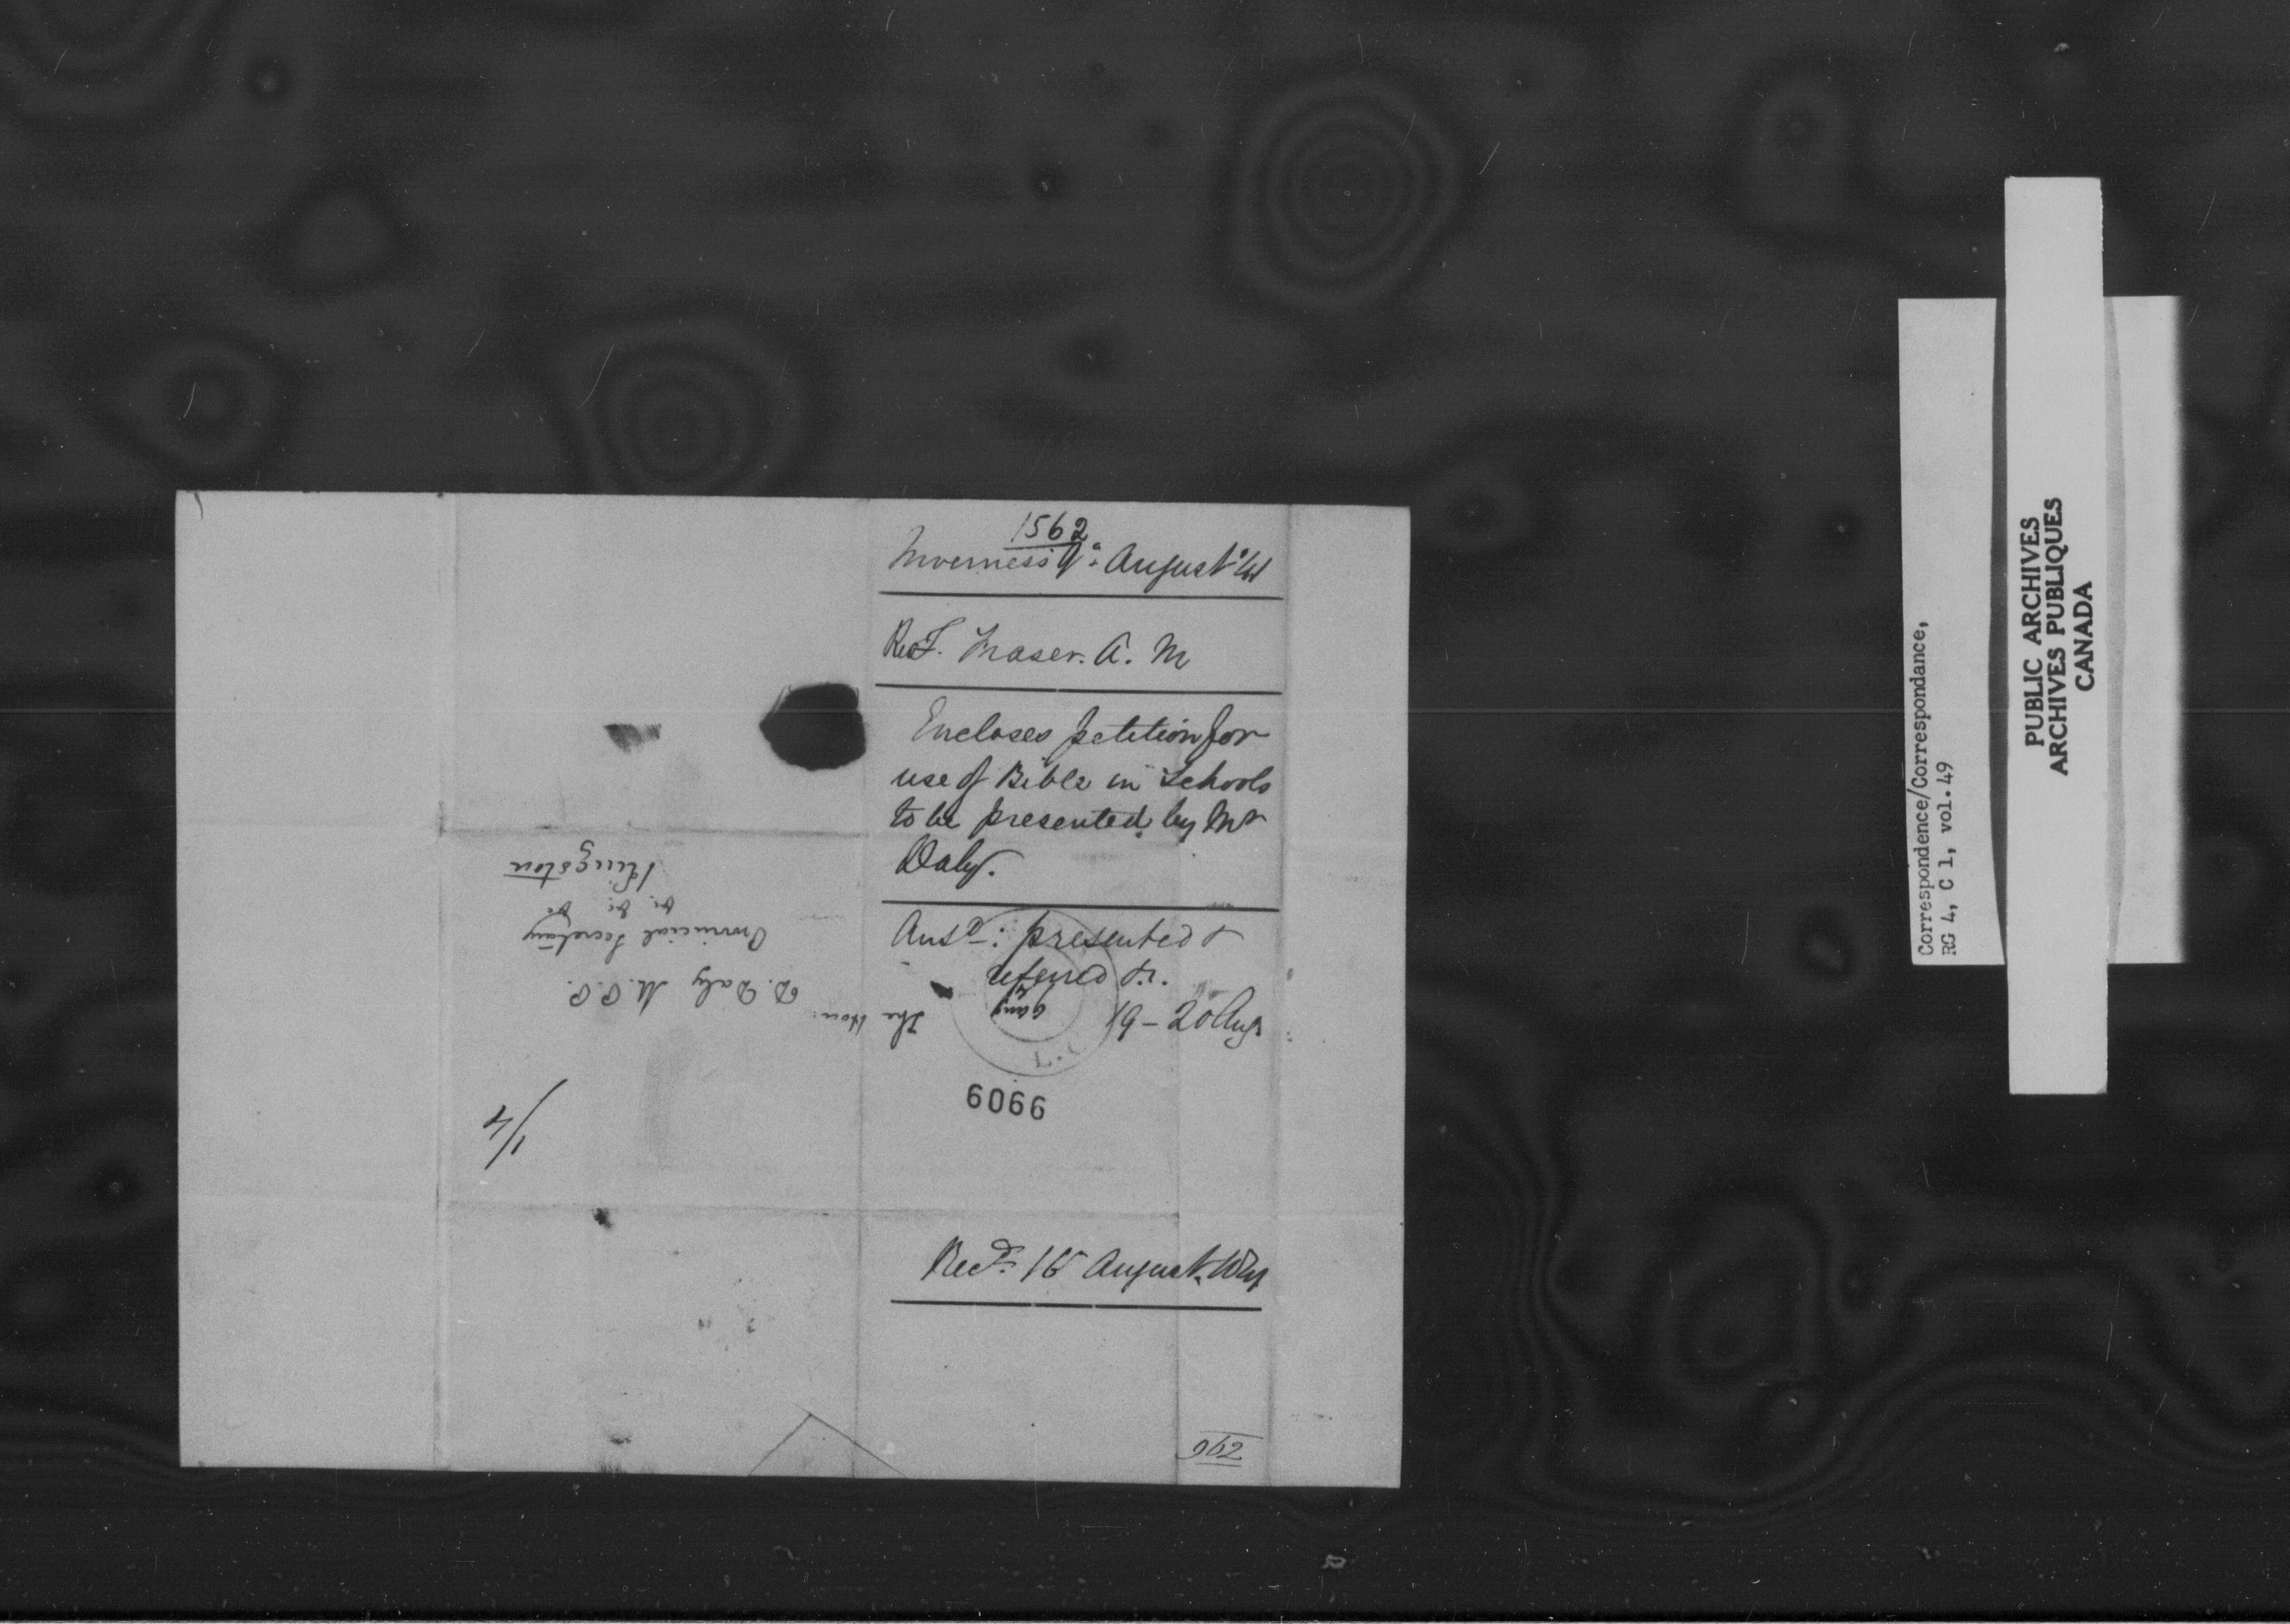 1562
Inverness 9: August '41
Revd. Fraser. A. M
Encloses petition for
use of Bible in Schools
to be presented by Mr
Daly.
Ansd: presented &
referred &c.
19 - 20 Augt
6066
Recd. 16 August. 1841
962
The Hon:
D. Daly M.P.P.
Provincial Secretary
&c. &c. &c
Kingston
1/4
Correspondence/Correspondance,
RG 4, C 1, vol. 49
PUBLIC ARCHIVES
ARCHIVES PUBLIQUES
CANADA